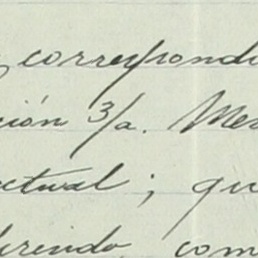 correspond
ción 3/a. Mer
ectual; qu
diriendo, com